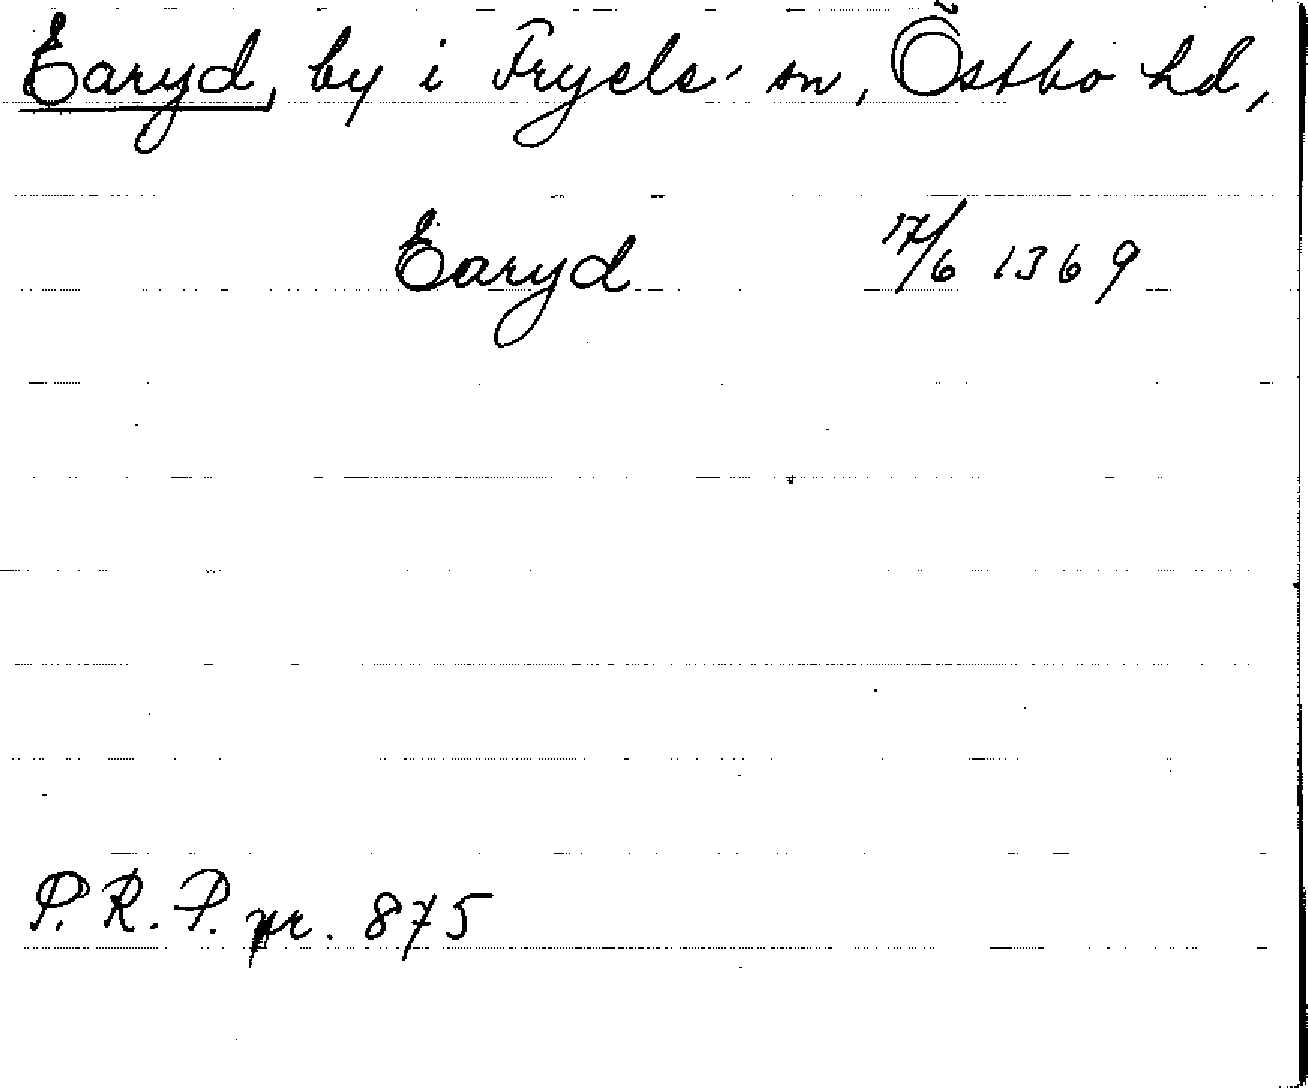 Earyd, by i Fryele sn, Östbo hd,
Earyd 17/6 1369
P. R. P. pr. 875